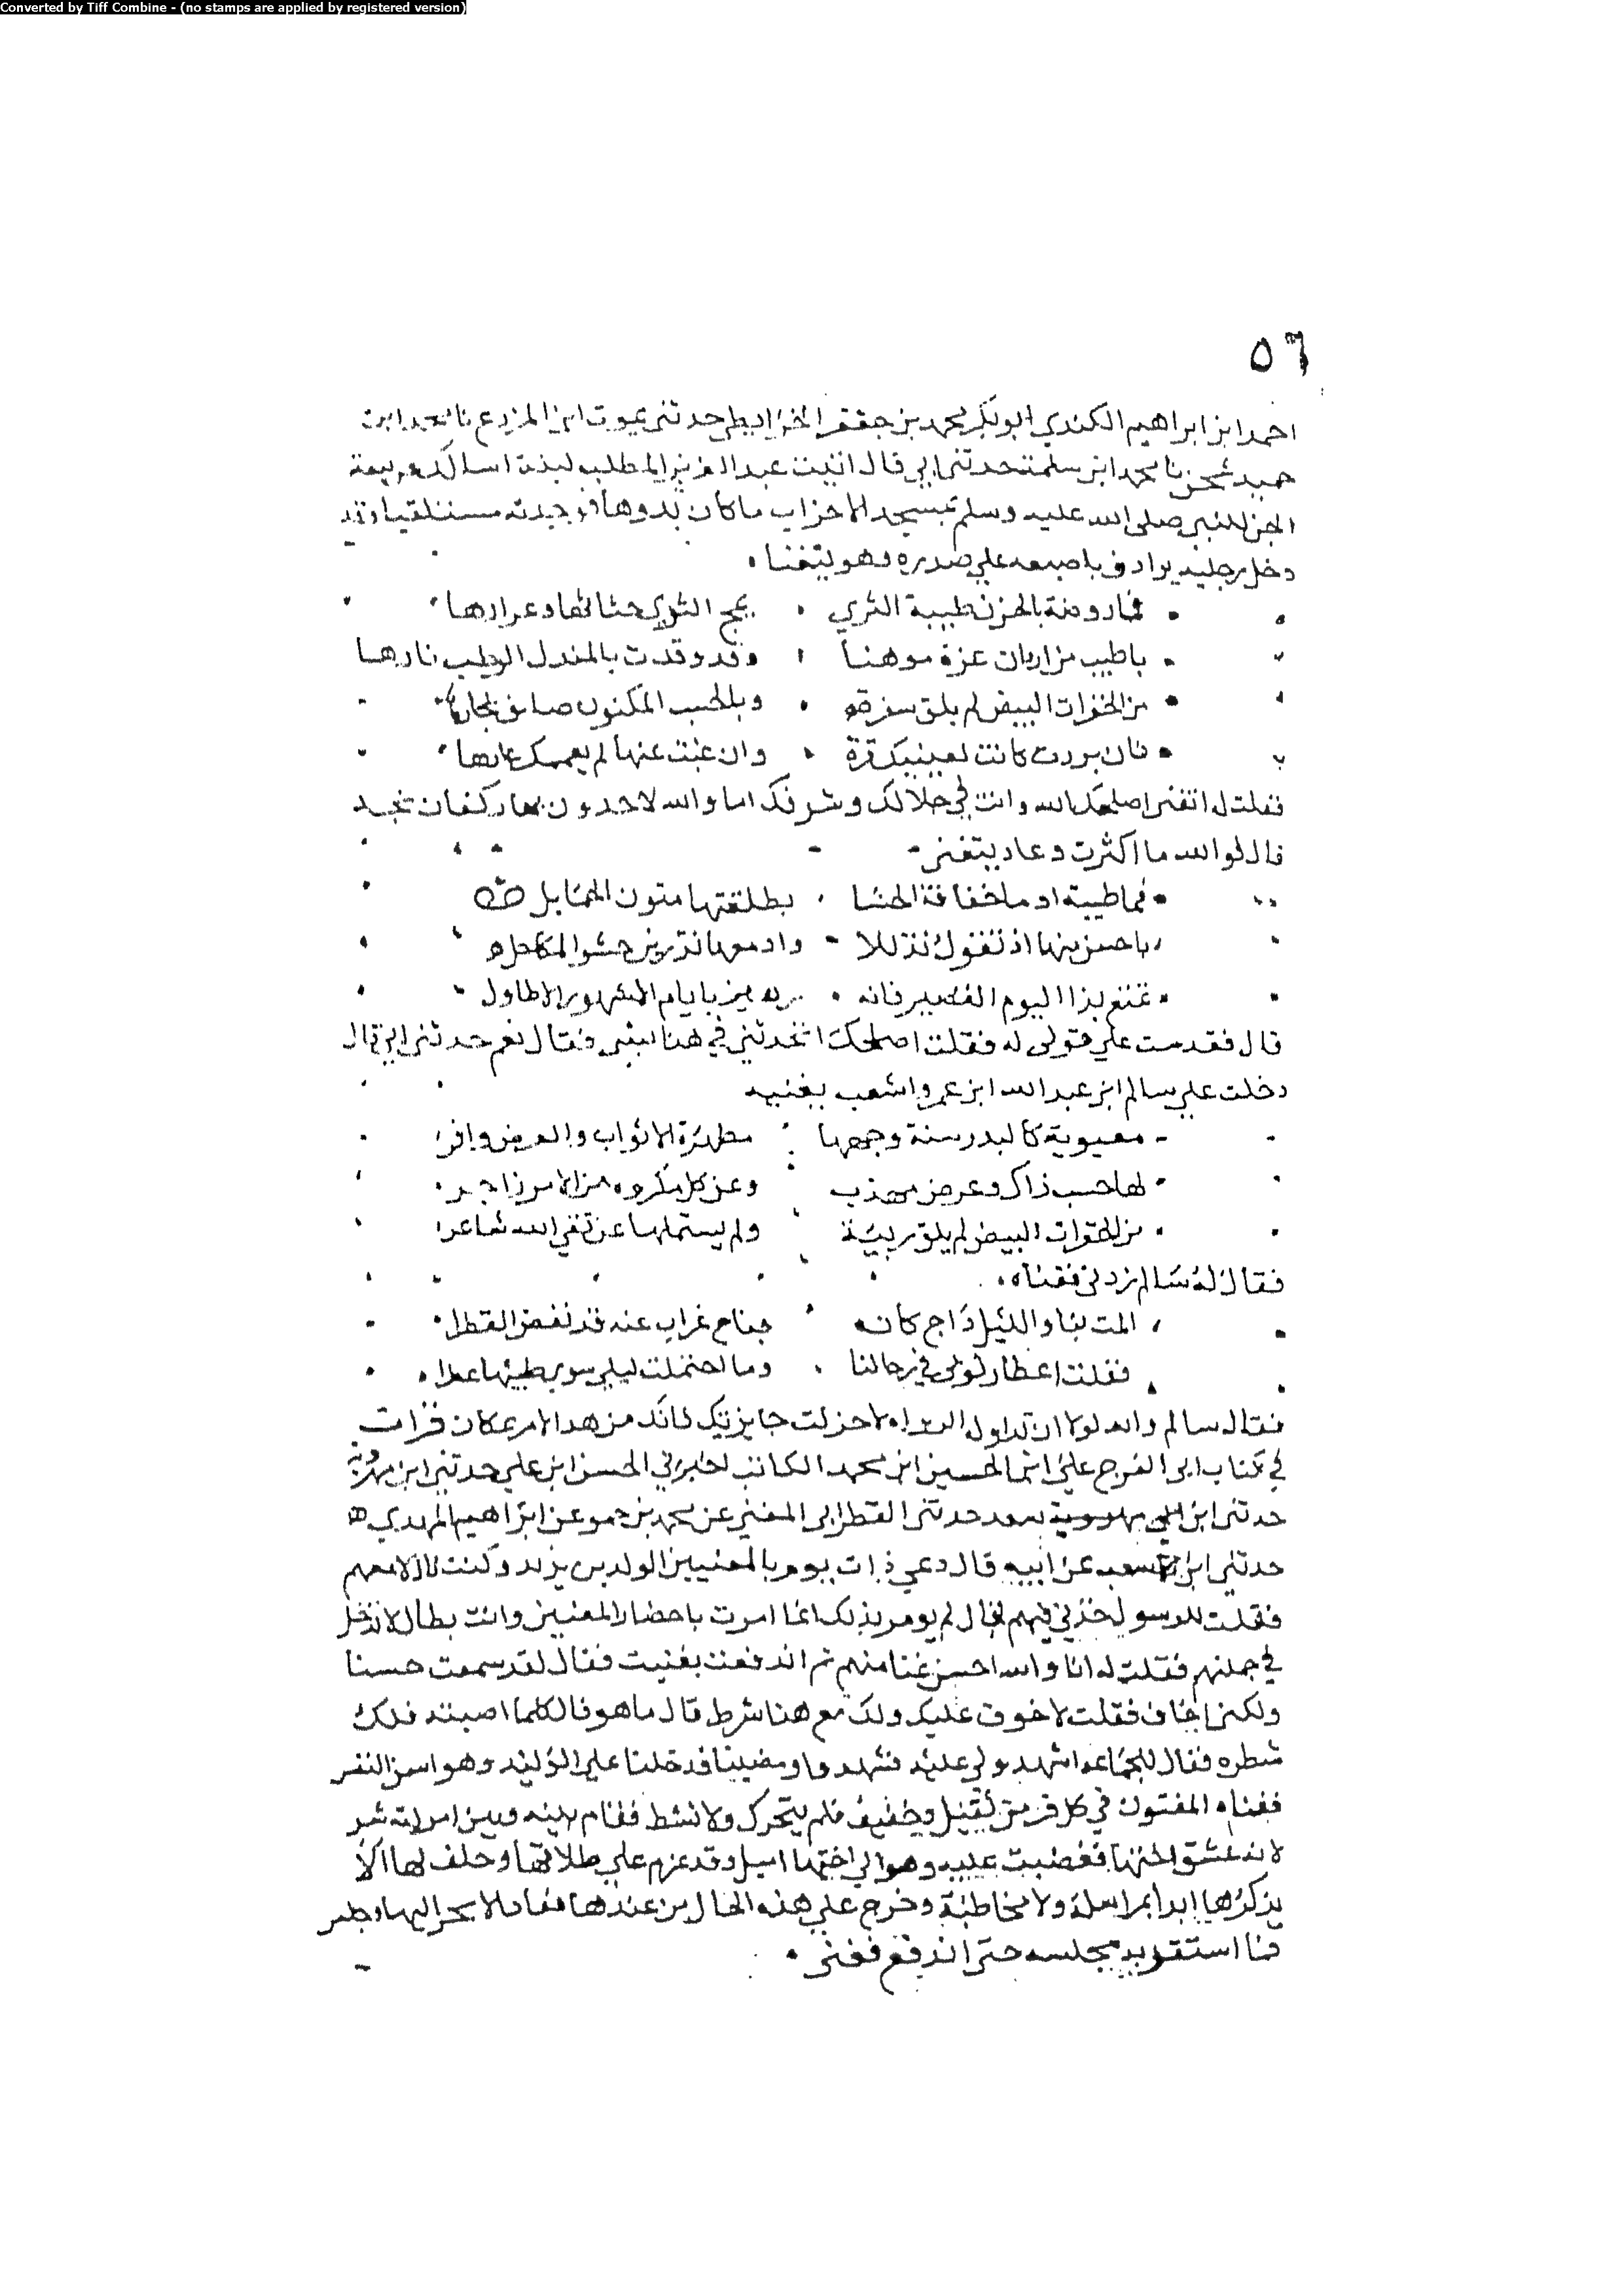 Converted by Tiff Combine - (no stamps are applied by registered version)
٥٦
احمد ابن ابراهيم الكندي ابو بكر محمد بن جعفر الخرايطي حدثني يموت ابن المزرع نا محمد ابن
حميد نا محمد ابن سلمة حدثني ابي قال اتيت عبد العزيز المطلب اساله عن بيعة
الجن للنبي صلى الله عليه وسلم بمسجد الاحزاب ما كان بدوها فوجدته مستلقيا وقد
دخل رجليه باصبعه علي صدره وهو يتغنا
فما روضة بالحزن طيبة الثري يمج الثري جثاثها وعرارها
باطيب من اردان عزة موهنا وقد وقدت بالمندل الرطب نارها
من الخفرات البيض لم يلق وبالحسب المكنون صاف
فان برزت كانت لعينيك قرة وان غبت عنها لم يعممك عارها
فقلت له اتغني اصلحك الله وانت في جلالك وشرفك اما والله لاحدون بها ركبان نجد
قال فوالله ما اكثرت وعاد يتغني
فما ظبية ادما خفاقة الحشا متون الخمايل
باحسن منها اذ تقول تذللا وادمعها تذرين حشو المكاحل
تمتع بذا اليوم القصير فانه رهين بايام الشهور الاطاول
قال فقدمت علي قولي له فقلت اصلحك اتحدثني في هذا بشي فقال نعم حدثني ابي قال
دخلت علي سالم ابن عبد الله ابن عمر واشعب يغنيه
كالبدر سنة وجهها مطهرة الاثواب والعرض وافر
لها حسب ذاك وعرض مهذب وعن كل مكروه من الامر زاجر
من الخفرات البيض لم يلق ريبة ولم يستملها عن تقي الله شاعر
فقال له سالم زدني فغناه
المت بنا والليل داج كانه جناح غراب عنه قد نفض القطرا
فقلت اعطار ثوي في رحالنا وما احتملت ليلي سوي طيبها عطرا
فقال سالم والله لولا ان تداوله الرواه لاجزلت جايزتك فانك من هذا الامر بمكان قرات
في كتاب ابي الفرج علي ابن الحسين ابن محمد الكاتب اخبرني الحسن ابن علي حدثني ابن مهرويه
حدثني ابن ابي سعد حدثني القطراني المغني عن محمد بن عن ابراهيم المهدي
حدثني ابن اشعب عن ابيه قال دعي ذات يوم بالمغنيين الوليد بن يزيد وكنت نازلا معهم
فقلت للرسول خذني فيهم قال لم يومر بذلك انما امرت باحضار المغنيين وانت بطال لا تدخل
في جملتهم فقلت له انا والله احسن غنا منهم ثم اندفعت بغنيت فقال لقد سمعت حسنا
ولكني اخاف فقلت لا خوف عليك ولك مع هذا شرط قال ما هو قال كلما اصبته فلك
شطره فقال للجماعه اشهدو لي عليه فشهدوا ومضينا فدخلنا علي الوليد وهو النفس
فغناه المغنون في كل فن من ثقيل وخفيف فلم يتحرك ولا نشط فقام بينه وبين امراته شر
لانه عشق اختها فغضبت عليه وهو الي اختها اميل وقد عزم علي طلاقها وحلف لها الا
يذكرها ابدا بمراسلة ولا مخاطبة وخرج علي هذه الحال من عندها اليها وجلس
فما استقر به مجلسه حتى اندفع فغني